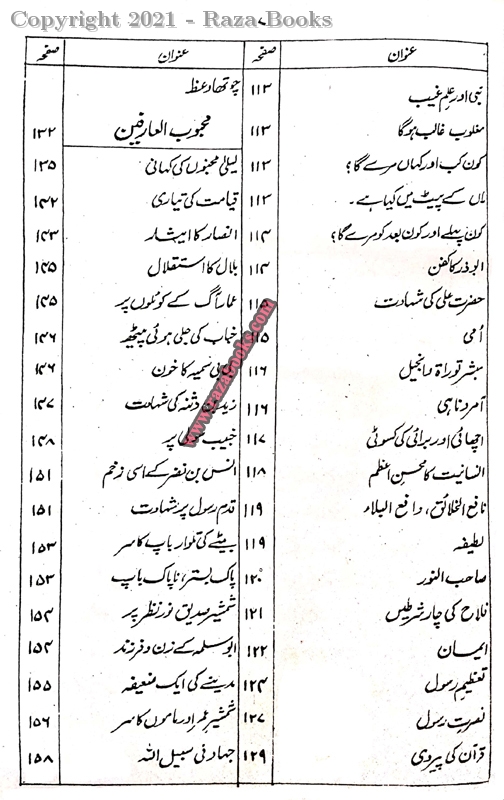 Copyright 2021 - Raza Books
۷
عنوان صفحہ عنوان صفحہ
نبی اور علم غیب ۱۱۳ چوتھا وعظ
مغلوب غالب ہوگا ۱۱۳ محبوب العارفین ۱۳۲
کون کب اور کہاں مرے گا؟ ۱۱۳ لیلیٰ مجنوں کی کہانی ۱۳۵
ماں کے پیٹ میں کیا ہے۔ ۱۱۳ قیامت کی تیاری ۱۴۲
کون پہلے اور کون بعد کو مرے گا؟ ۱۱۴ انصار کا ایثار ۱۴۳
ابوذر کا کفن ۱۱۴ بلال کا استقلال ۱۴۵
حضرت علی کی شہادت ۱۱۵ عمار آگ کے کوئلوں پر ۱۴۵
اُمی ۱۱۵ خباب کی جلی ہوئی پیٹھ ۱۴۶
مبشر توراۃ و انجیل ۱۱۶ بی بی سمیہ کا خون ۱۴۶
آمر و ناہی ۱۱۶ زید بن دثنہ کی شہادت ۱۴۷
اچھائی اور برائی کی کسوٹی ۱۱۷ خبیب سولی پر ۱۴۸
انسانیت کا محسنِ اعظم ۱۱۸ انس بن نضر کے اسی زخم ۱۵۱
نافع الخلائق، دافع البلاء ۱۱۹ قدمِ رسول پر شہادت ۱۵۱
لطیفہ ۱۱۹ بیٹے کی تلوار باپ کا سر ۱۵۳
صاحب النور ۱۲۰ پاک بستر، ناپاک باپ ۱۵۳
فلاح کی چار شرطیں ۱۲۱ شمشیرِ صدیق نورِ نظر پر ۱۵۴
ایمان ۱۲۲ ابو سلمہ کے زن و فرزند ۱۵۴
تعظیمِ رسول ۱۲۴ مدینے کی ایک ضعیفہ ۱۵۵
نصرتِ رسول ۱۲۷ شمشیرِ عمر اور ماموں کا سر ۱۵۶
قرآن کی پیروی ۱۲۹ جہاد فی سبیل اللہ ۱۵۸
www.razabooks.com